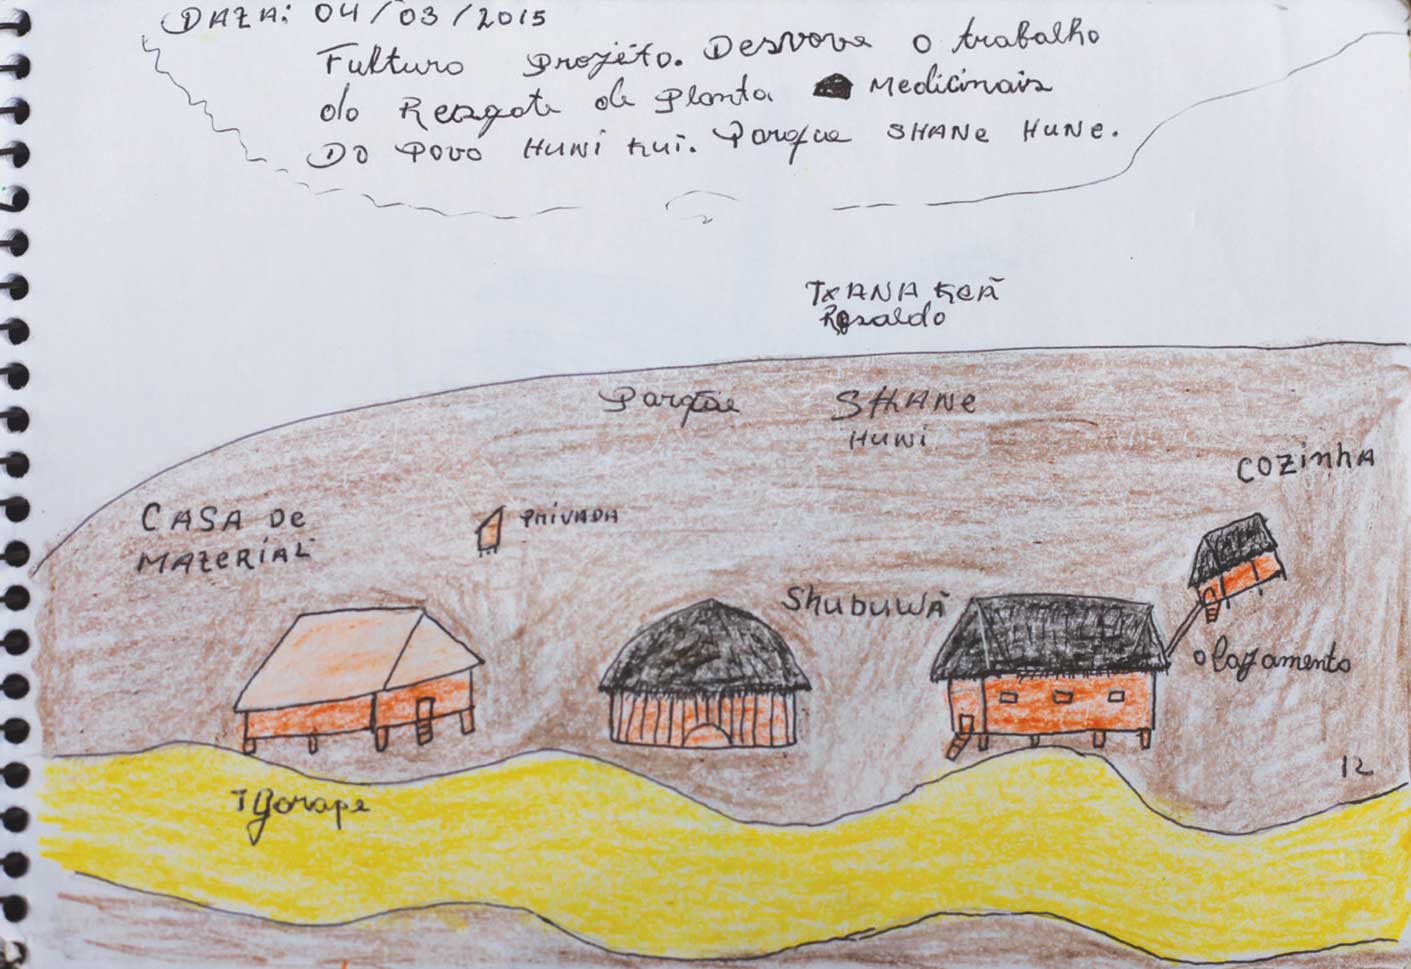 DATA: 04/03/2015
Fulturo Projéto. Desvove o trabalho
do Resgate de Planta Medicinais
Do Povo HUNI KUĨ. Parque SHANE HUNE.
TXANA KEÃ
Rosaldo
Parque SHANE
HUNI
COZINHA
CASA De
MATERIAL
PRIVADA
ShubuWÃ
olojamento
12
Igorape